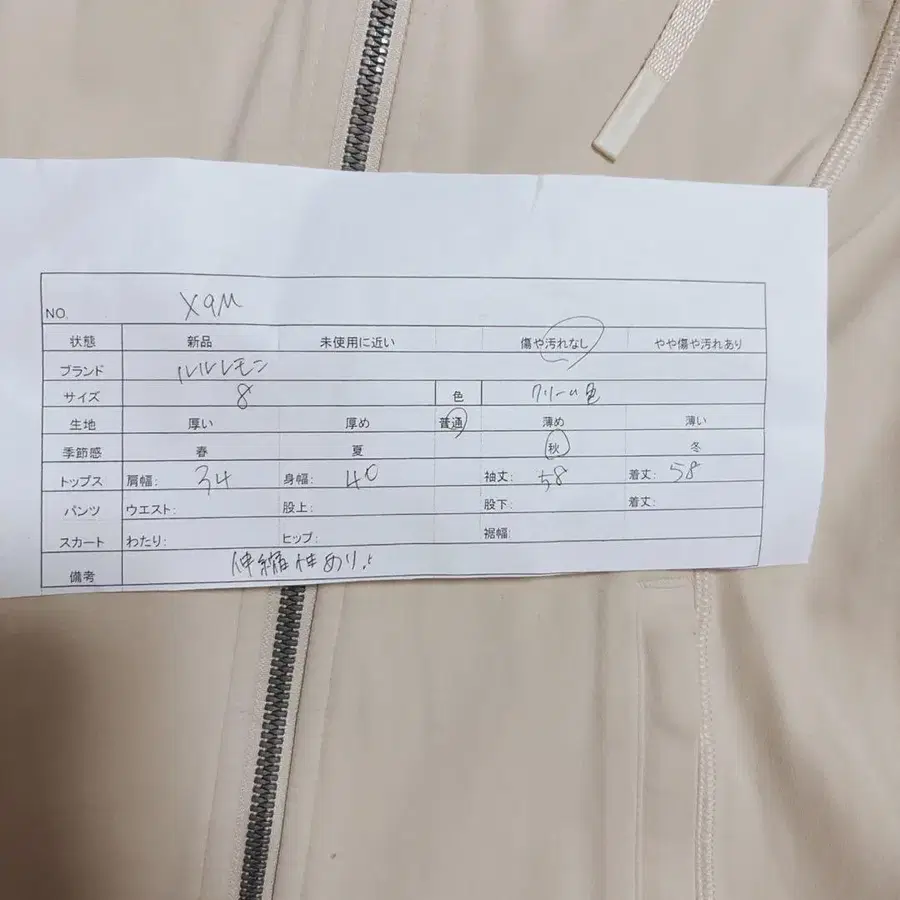 NO. X9M
状態 新品 未使用に近い 傷や汚れなし やや傷や汚れあり
ブランド ルルレモン
サイズ 8 色 クリーム色
生地 厚い 厚め 普通 薄め 薄い
季節感 春 夏 秋 冬
トップス 肩幅: 34 身幅: 40 袖丈: 58 着丈: 58
パンツ ウエスト: 股上: 股下: 着丈:
スカート わたり: ヒップ: 裾幅:
備考 伸縮性あり。